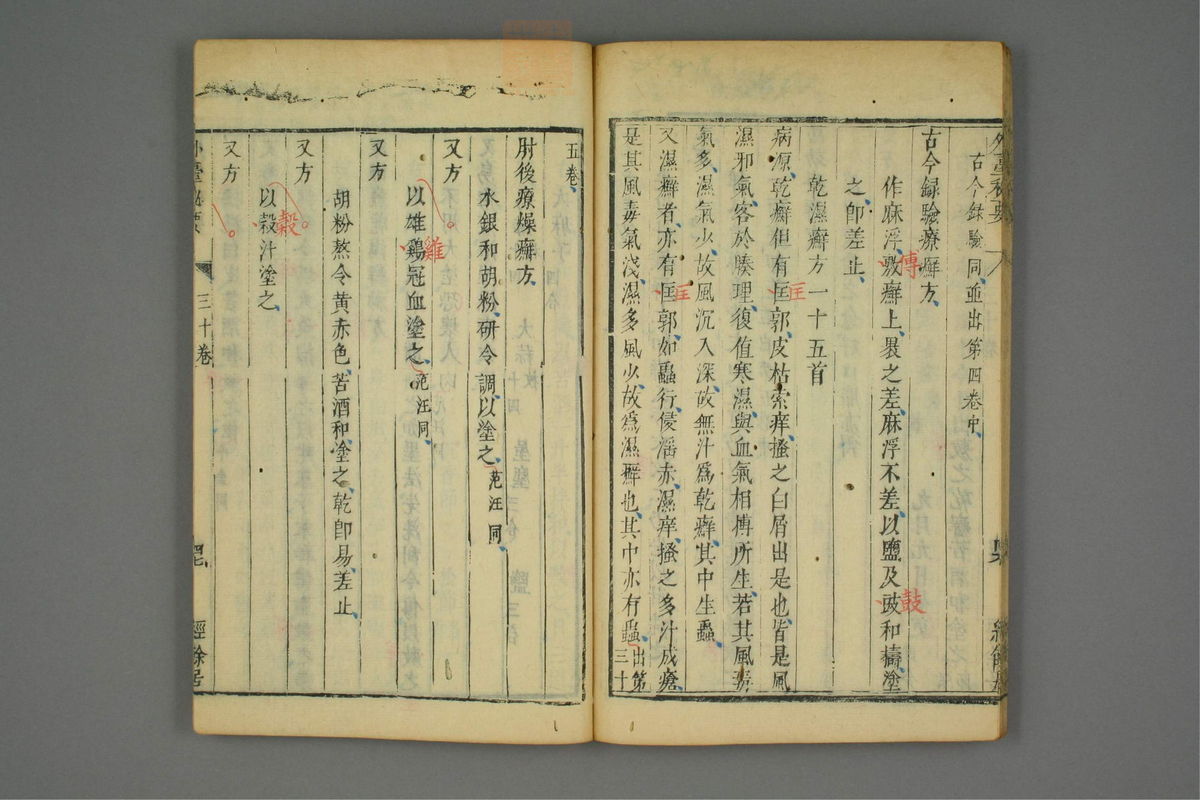 外臺秘要
古今録驗同並出第四卷中
古今録驗療癬方
作麻浮敷癬上裛之差麻浮不差以鹽及豉和擣塗
傅
鼓
之卽差止
乾濕癬方一十五首
病源乾癬但有匡郭皮枯索痒搔之白屑出是也皆是風
匡
濕邪氣客於腠理復值寒濕與血氣相搏所生若其風毒
氣多濕氣少故風沉入深故無汁爲乾癬其中生蟲
又濕癬者亦有匡郭如蟲行侵淫赤濕痒搔之多汁成瘡
匡
是其風毒氣淺濕多風少故爲濕癬也其中亦有蟲出第三十
五卷
肘後療燥癬方
水銀和胡粉研令調以塗之范汪同
又方
以雄鷄冠血塗之范汪同
雞
又方
胡粉熬令黃赤色苦酒和塗之乾卽易差止
又方
以穀汁塗之
榖
又方
外臺秘要
三十卷
經餘居